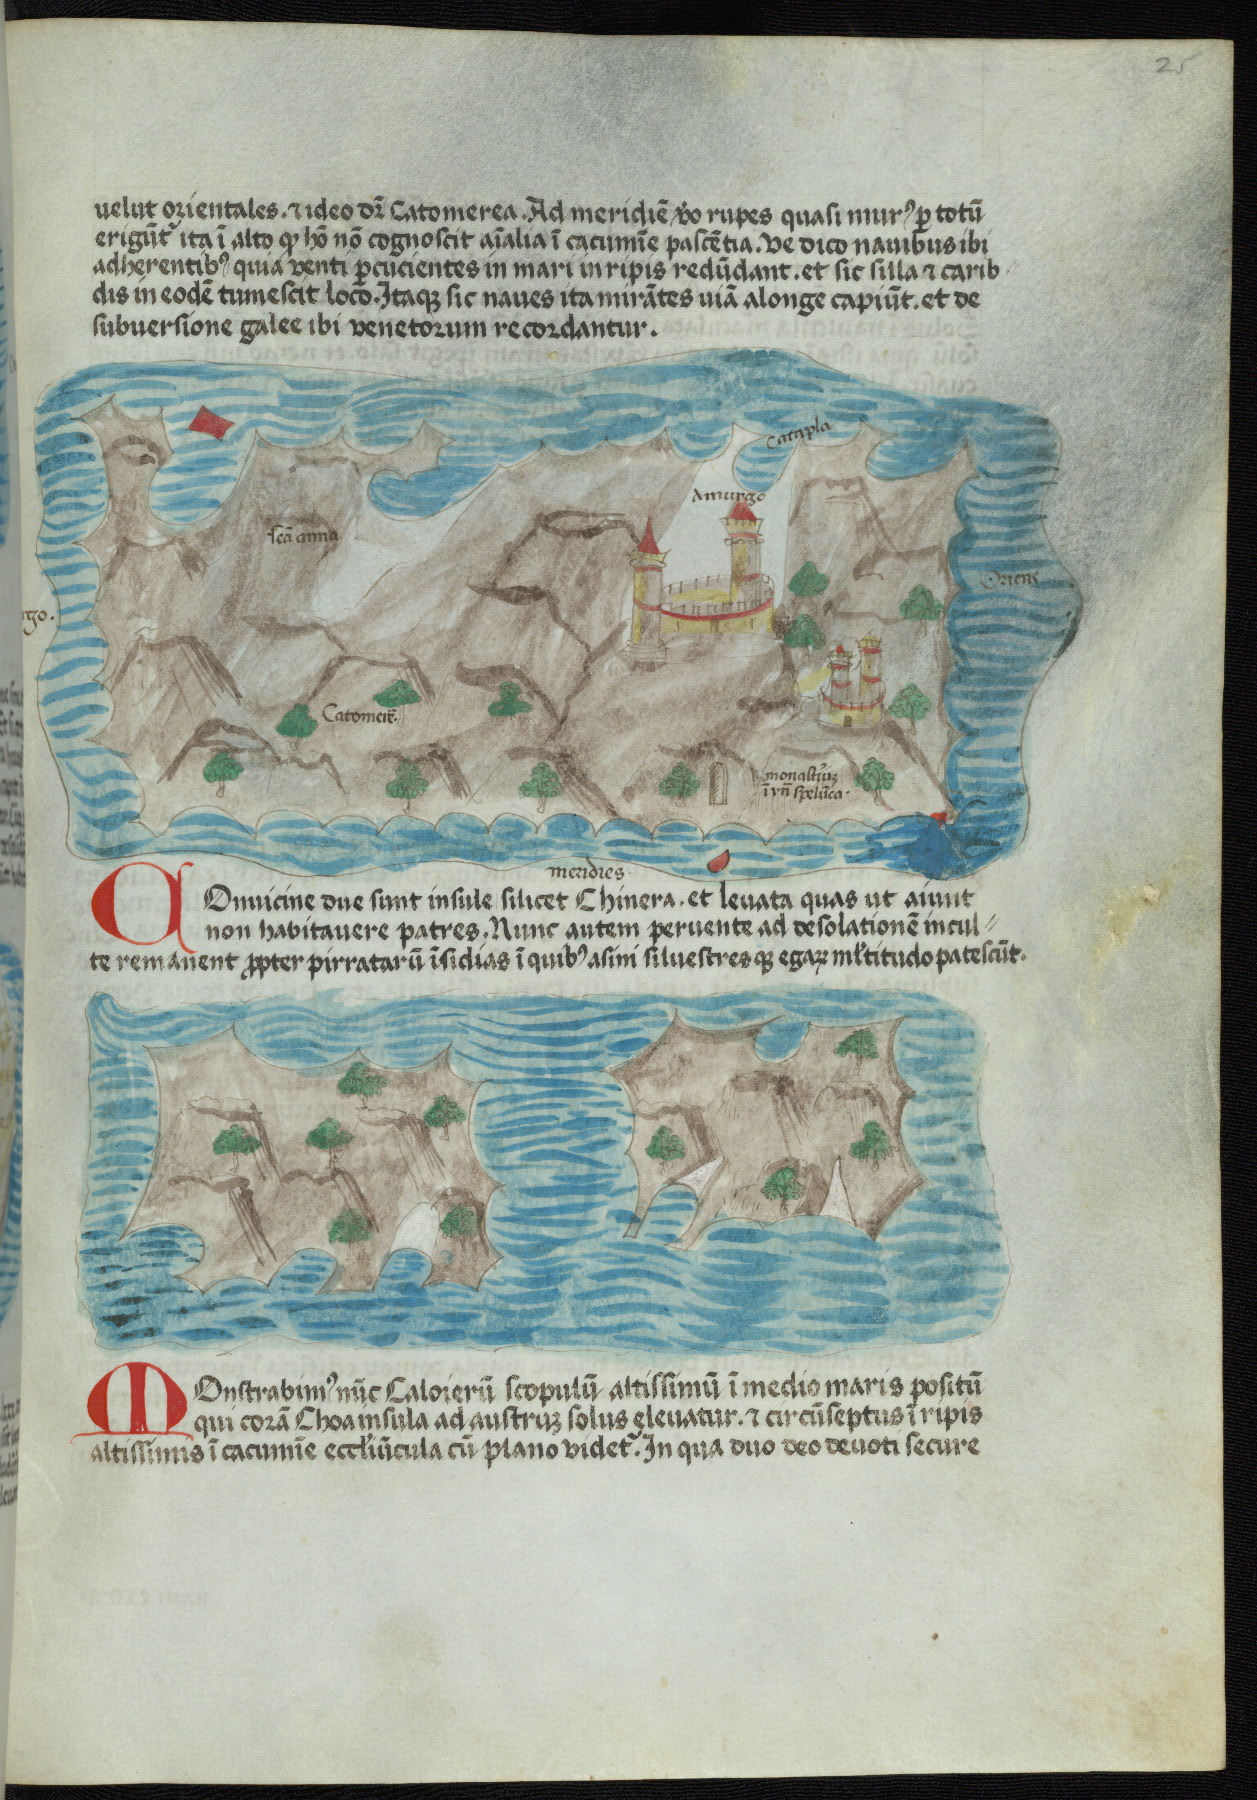 25
uelut orientales. ⁊ ideo dr̄ Catomerea. Ad meridiē v̓o rupes quasi murꝰ ꝑ totū
erigūt᷑ ita ī alto ꝙ hō nō cognoscit aīalia ī cacumīe pascētia. Ve dico nauibus ibi
adherentibꝰ quia venti ꝑcucientes in mari in ripis redūdant. et sic silla ⁊ carib
dis in eodē tumescit loco. Itaqꝫ sic naues ita mirātes uiā alonge capiūt. et de
subuersione galee ibi venetorum recordantur.
Catapla
Amurgo
scā anna
Oriens
go.
Catomer̄.
monastꝰiuꝫ
ī vn̄ spelūca.
meridies.
COnuicine due sunt insule silicet Chinera. et leuata quas ut aiunt
non habitauere patres. Nunc autem peruente ad desolationē incul⸗
te remanent ꝓpter pirratarū īsidias ī quibꝰ asini siluestresqꝫ egaꝝ ml̓titudo patescūt.
MOnstrabimꝰ nūc Caloierū scopulū altissimū ī medio maris positū
qui corā Choa insula ad austruꝫ solus eleuatur. ⁊ circūseptus ī ripis
altissimis ī cacumīe eccl̓iūcula cū plano videt᷑. In qua duo deo deuoti secure